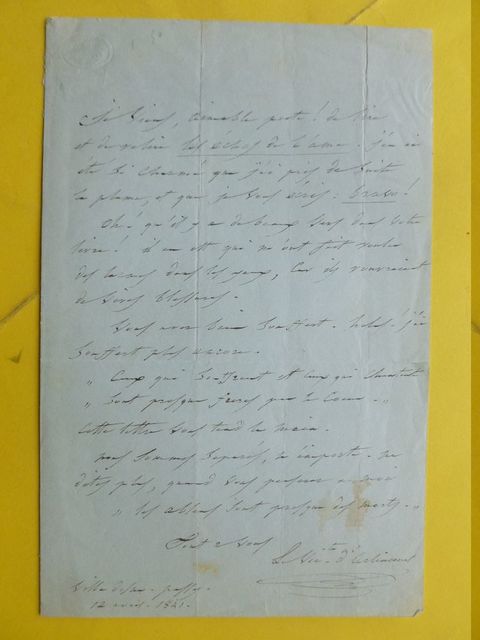 Je viens, aimable poète! de lire
et de relire les échos de l'âme. j'en ai
été si charmé que j'ai pris de suite
la plume, et que je vous écris: bravo!
Oh! qu'il y a de beaux vers dans votre
livre! il en est qui m'ont fait rouler
des larmes dans les yeux, car ils rouvraient
de vives blessures.
Vous avez bien souffert. hélas! j'ai
souffert plus encore.
„ Ceux qui souffrent et ceux qui chantent
„ Sont presque frères par le Coeur. „
Cette lettre vous tend la main.
nous sommes séparés, n'importe. ne
dites plus, quand vous penserez à moi
„ les absens sont presque des morts. „
Tout à vous
Le Victe d'Arlincourt
passy
12 avril. 1841.